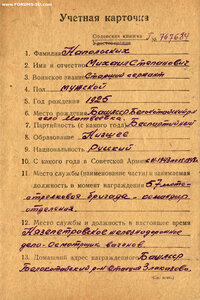 FORUMS-SU.COM
Учетная карточка
Орденская книжка
№ 767634
1. Фамилия Напольских
2. Имя и отчество Михаил Степанович
3. Воинское звание Старший сержант
4. Пол мужской
5. Год рождения 1925
6. Место рождения Башкир Белокатайский р-н
7. Партийность (с какого года) Беспартийный
8. Образование Низшее
9. Национальность Русский
10. С какого года в Советской Армии
11. Место службы (наименование части) и занимаемая
должность в момент награждения 57 мото-
стрелковая бригада - командир
отделения.
12. Место службы и должность в настоящее время
Нязепетровское железнодорожное
депо - Осмотрщик вагонов.
13. Домашний адрес награжденного Башкир
Белокатайский р-н